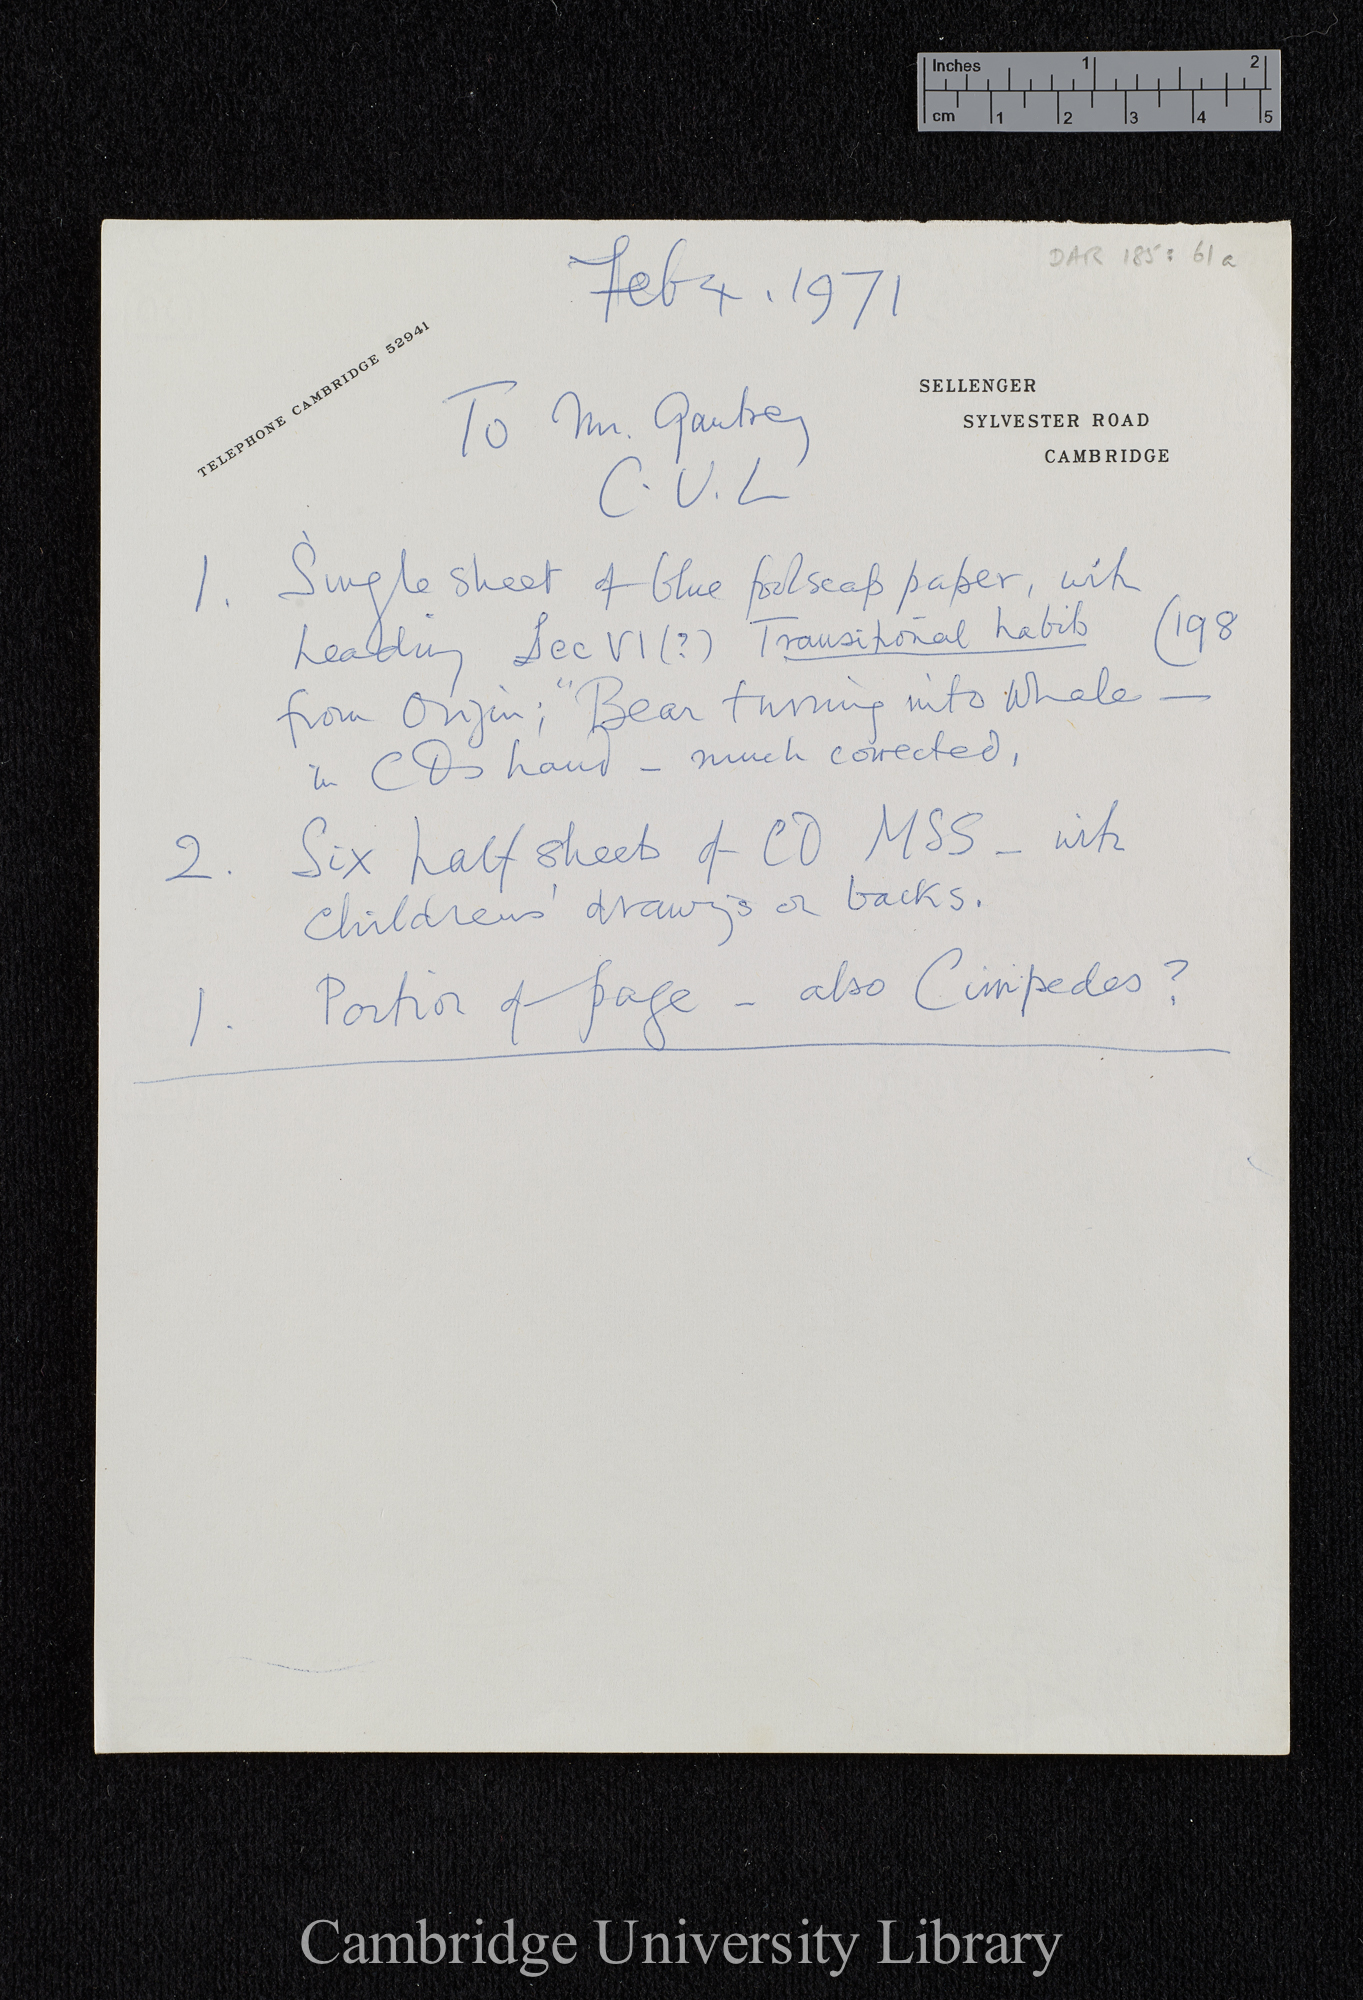 Inches 1 2
cm 1 2 3 4 5
DAR 185: 61a
Feb 4. 1971
TELEPHONE CAMBRIDGE 52941
SELLENGER
SYLVESTER ROAD
CAMBRIDGE
To Mr. Gautrey
C.U.L
1. Single sheet of blue foolscap paper, with
heading Sec VI (?) Transitional habits (198
from Origin; "Bear turning into Whale —
in CDs hand – much corrected.
2. Six half sheets of CD MSS – with
childrens' drawings on backs.
1. Portion of page – also Cirripedes?
Cambridge University Library